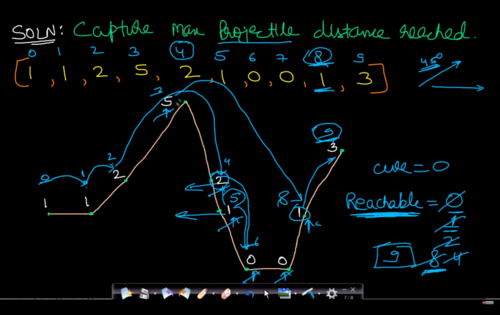 SOLN: Capture max Projectile distance reached.
0 1 2 3 4 5 6 7 8 9
[1, 1, 2, 5, 2, 1, 0, 0, 1, 3]
45°
5
3
9
3
2
2
4
2
0
1
5
1
1
1
8
1
6
0
0
curr=0
Reachable = 0
1
2
9
8 4
7/8